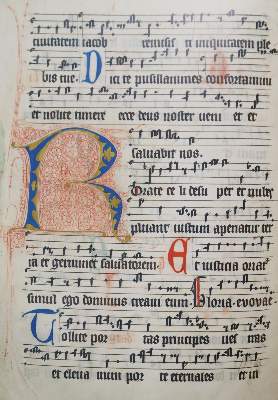 ciuitatem iacob remisisti iniquitatem ple
bis tue. Dici te pusillanimes confortamini
et nolite timere ecce deus noster ueni et et
saluabit nos.
Rorate celi desu per et nubes
pluant iustum aperiatur ter
ra et germinet saluatorem. Et iusticia oriat
simul ego dominus creaui eum. Gloria. euouae.
Tollite por tas principes ues tras
et eleua mini por te eternales et in